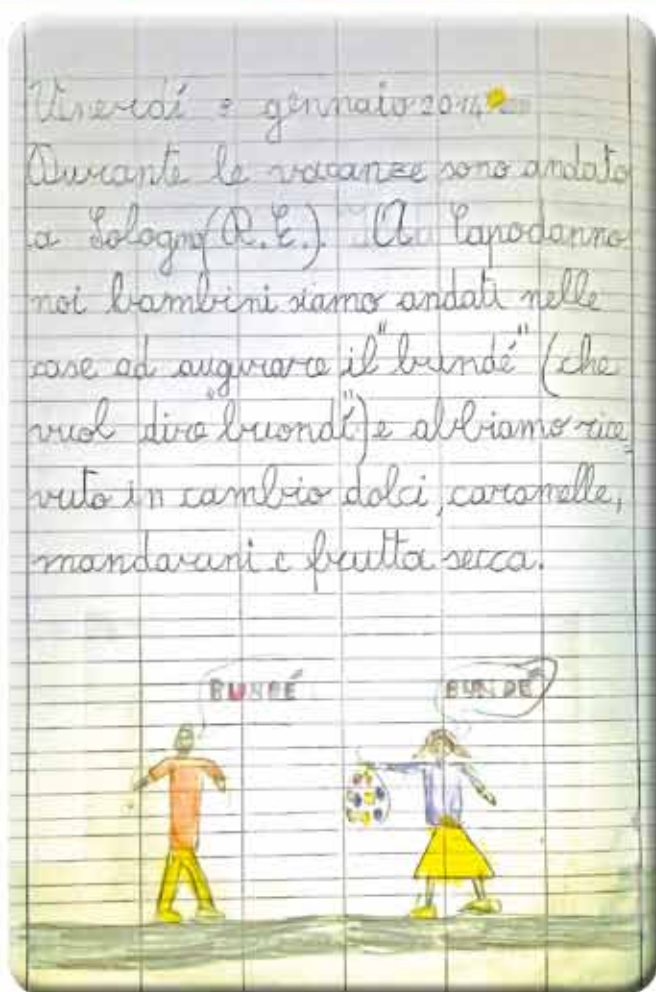 Venerdí 3 gennaio 2014
Durante le vacanze sono andato
a Sologno (R.E.). A Capodanno
noi bambini siamo andati nelle
case ad augurare il "bundé" (che
vuol dire "buondí") e abbiamo rice
vuto in cambio dolci, caramelle,
mandarini e frutta secca.
BUNDÉ
BUNDÉ